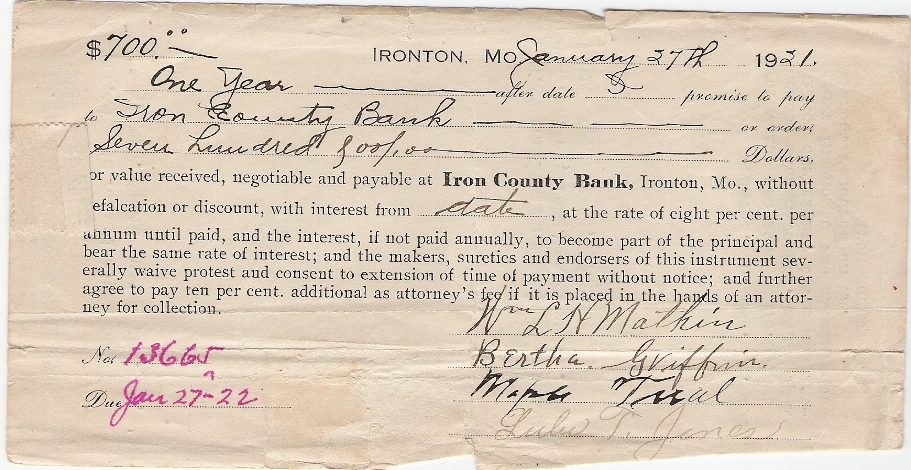 $700.00
IRONTON, Mo January 27th 1921.
One Year after date I promise to pay
to Iron County Bank or order,
Seven Hundred & 00/.00 Dollars,
or value received, negotiable and payable at Iron County Bank, Ironton, Mo., without
efalcation or discount, with interest from date, at the rate of eight per cent. per
annum until paid, and the interest, if not paid annually, to become part of the principal and
bear the same rate of interest; and the makers, sureties and endorsers of this instrument sev-
erally waive protest and consent to extension of time of payment without notice; and further
agree to pay ten per cent. additional as attorney's fee if it is placed in the hands of an attor-
ney for collection.
Wm L H
No. 13665
Bertha Griffin.
Due Jan 27-22
T. Jones